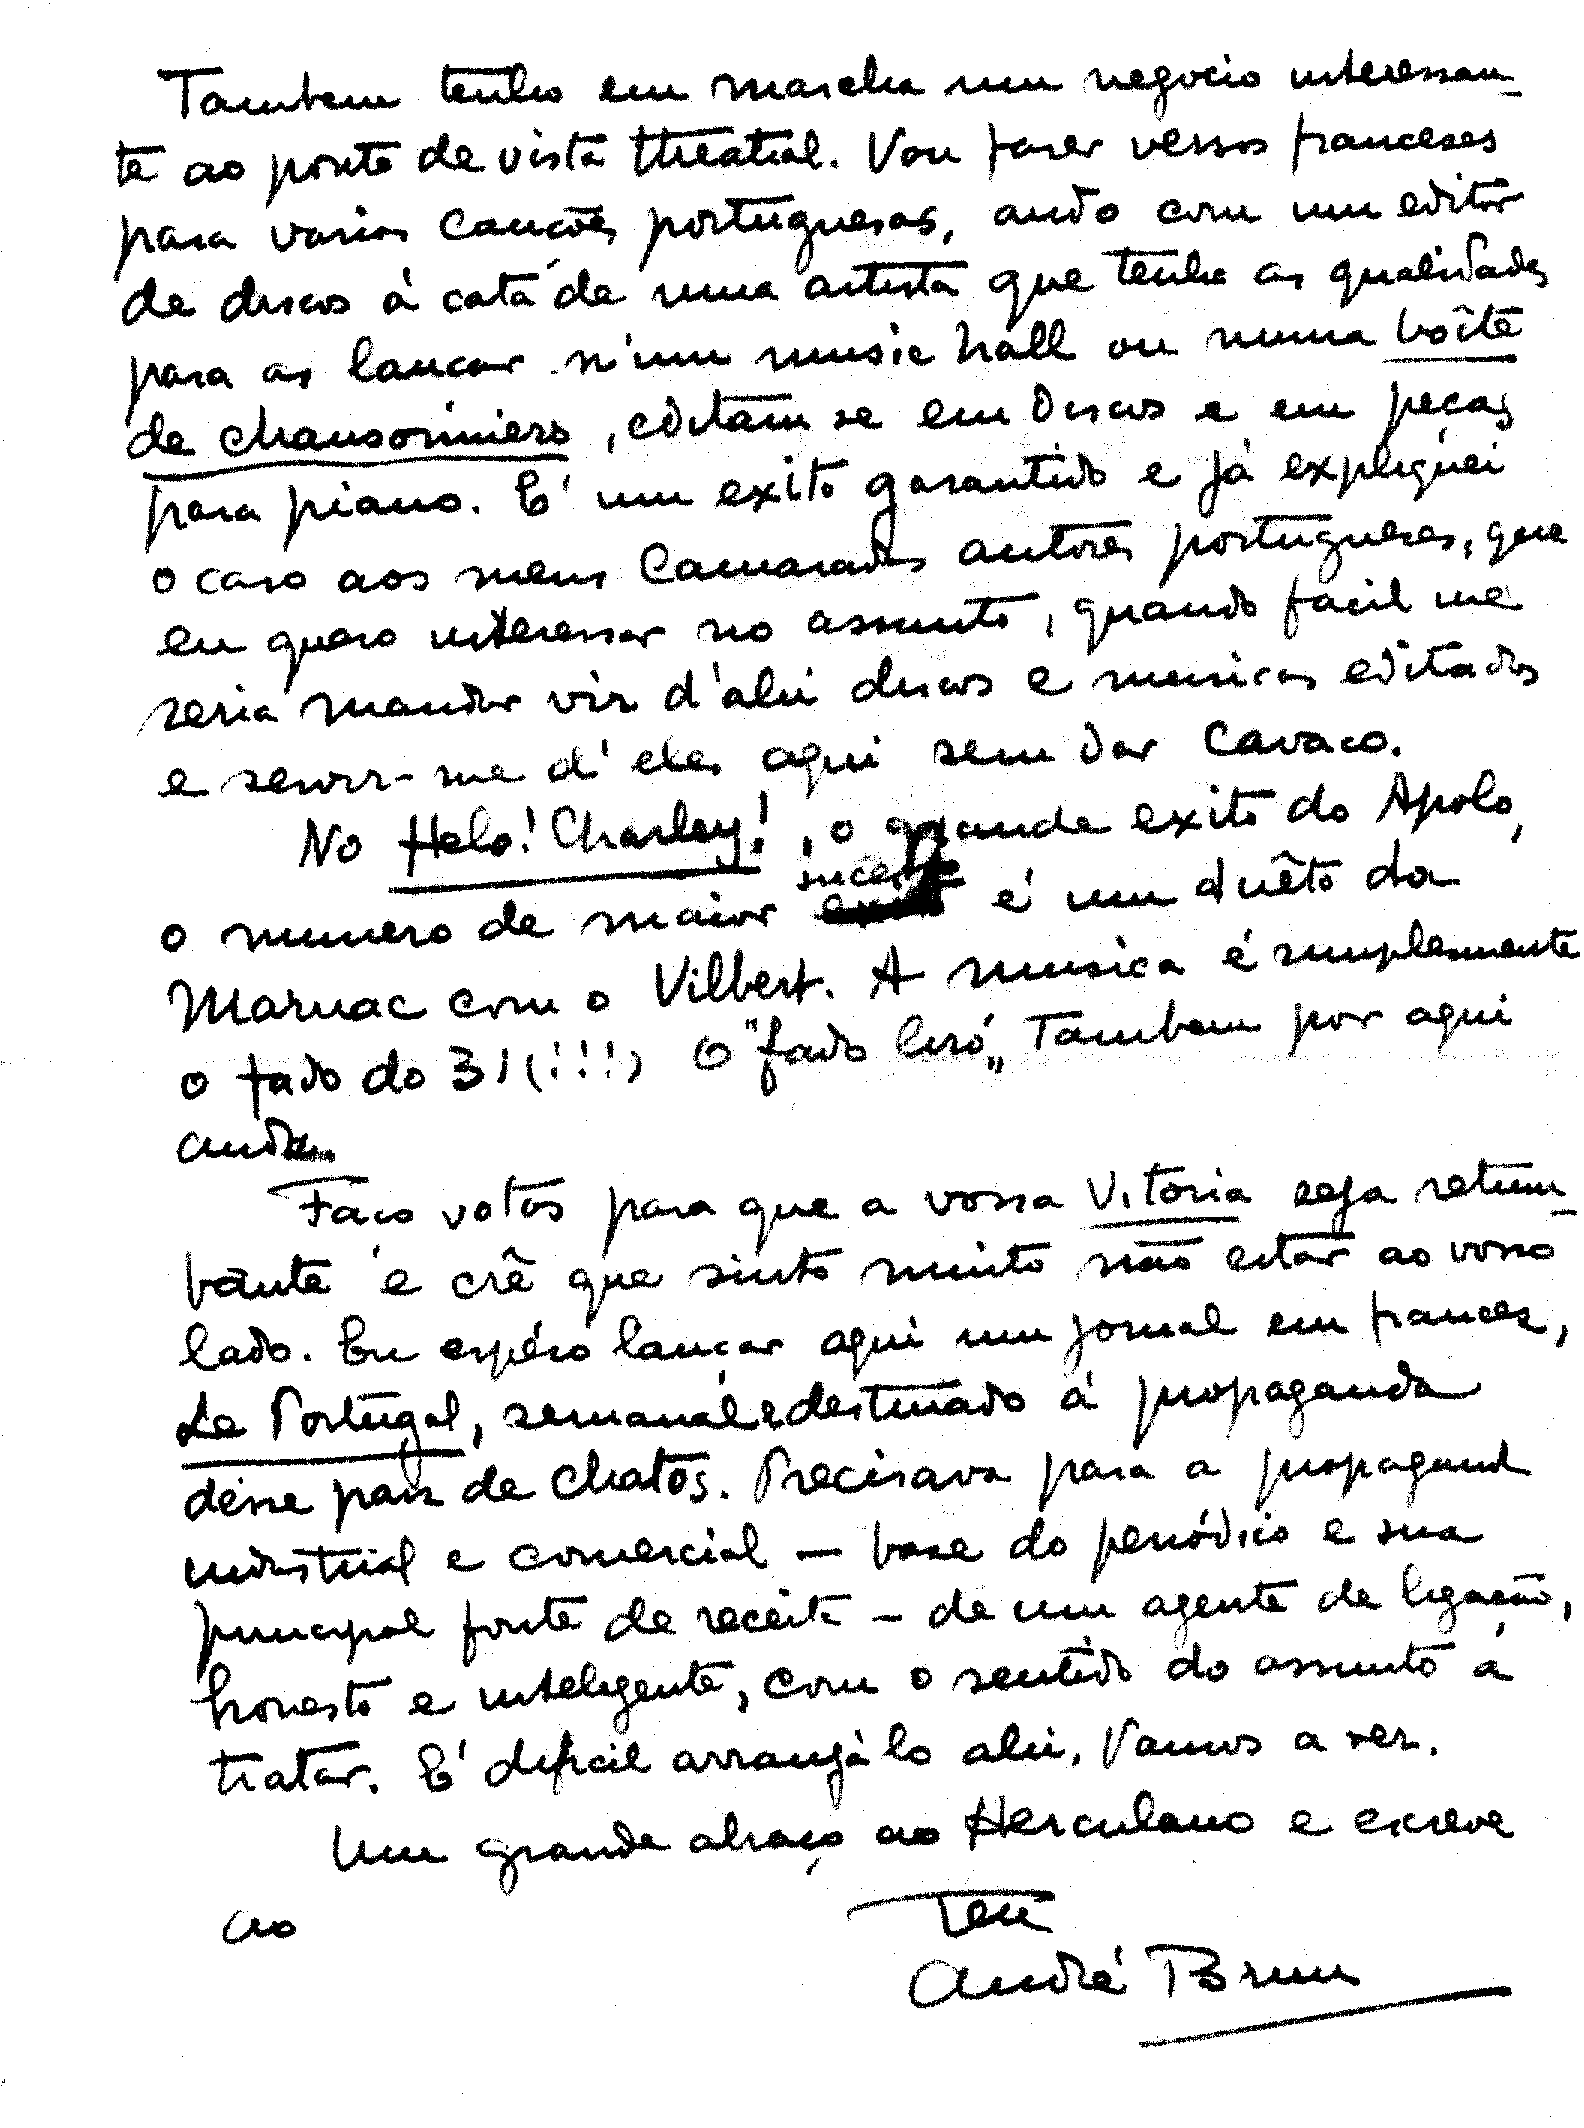 Tambem tenho em marcha um negocio interessan-
te ao ponto de vista theatral. Vou fazer versos franceses
para varias canções portuguesas, ando com um editor
de discos á cata de uma artista que tenha as qualidades
para as lançar n'um music hall ou numa boîte
de chansonniers, editam se em discos e em peças
para piano. E' um exito garantido e já expliquei
o caso aos meus camaradas autores portugueses, que
eu quero interessar no assunto, quando facil me
seria mandar vir d'ahi discos e musicas editados
e servir-me d'eles aqui sem dar cavaco.
No Helo! Charley!, o grande exito do Apolo,
o numero de maior sucesso é um duêto da
Marnac com o Vilbert. A musica é simplesmente
o fado do 31(!!!) O "fado liró" Tambem por aqui
anda.
Faço votos para que a vossa Vitoria seja retum-
bante e crê que sinto muito não estar ao vosso
lado. Eu espéro lançar aqui um jornal em francez,
Le Portugal, semanal e destinado á propaganda
désse paiz de chatos. Precisava para a propagand
industrial e comercial — base do periódico e sua
principal fonte de receita — de um agente de ligação,
honesto e inteligente, com o sentido do assunto a
tratar. E' dificil arranjá lo ahi. Vamos a ver.
Um grande abraço ao Herculano e escreve
ao
Teu
André Brun